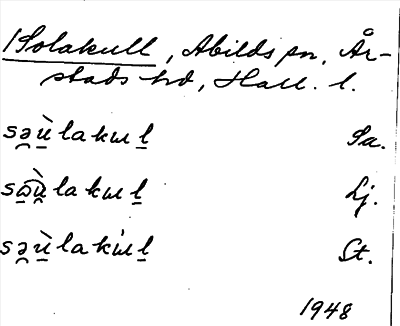 /Solakull, Abilds sn, År-
stads hd, Hall. l.
sə̯ù̠lakɯl̠ Sa.
sω̠ù̯lakɯl̠ Lj.
sə̯ù̠lakɯ̍l̠ St.
1948